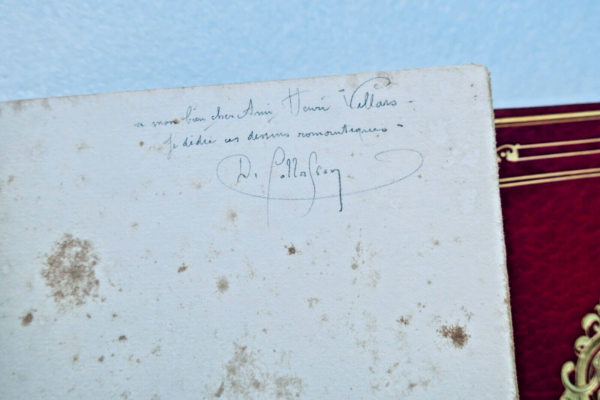 a mon bien cher Ami Henri Villars -
Je dédie ces dessins romantiques -
D.